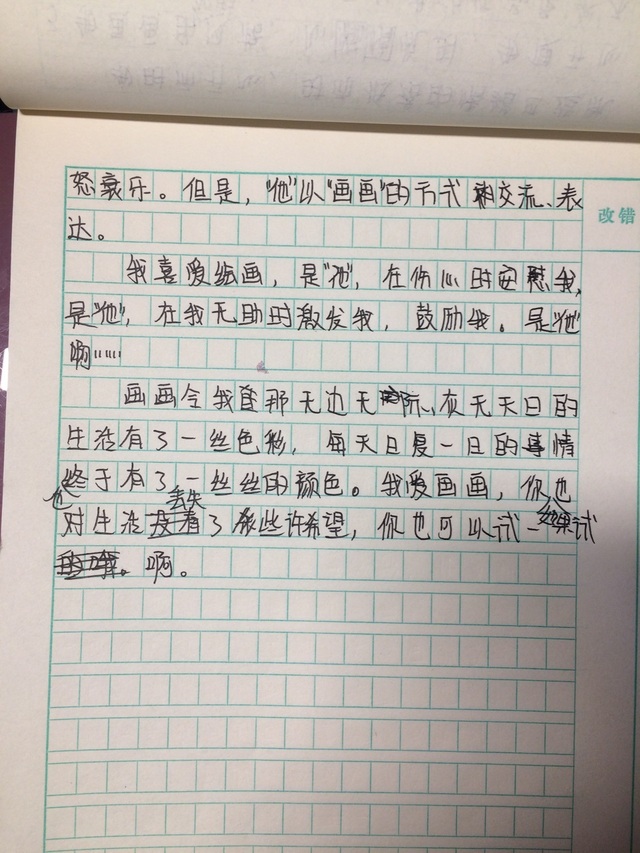 怒哀乐。但是，“他”以“画画”的方式 相交流、表
改错
达。
我喜爱绘画，是“他”，在伤心时安慰我，
是“他”，在我无助时激发我，鼓励我。是“他”
啊……
画画令我那无边无际、灰无天日的
生活有了一丝色彩，每天日复一日的事情
终于有了一丝丝的颜色。我爱画画，你也
也 丢失 如果
对生活没有了些许希望，你也可以试一试
啊。